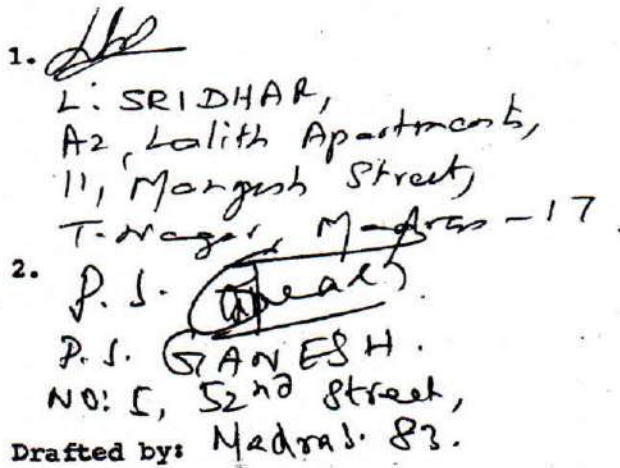 1.
L. SRIDHAR,
A2, Lalith Apartments,
11, Mangesh Street,
T. Nagar, Madras - 17.
2.
P. S.
P. S. GANESH.
NO: 5, 52nd Street,
Drafted by: Madras. 83.